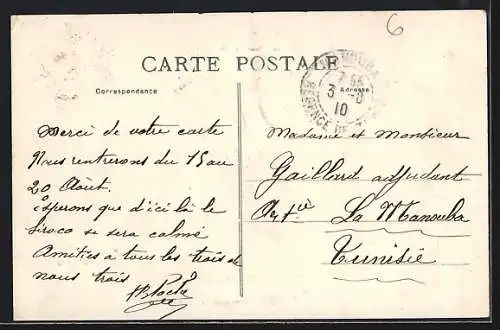 6
CARTE POSTALE
MANOUBA
3 - 8
10
RÉGENCE DE
Correspondance
Adresse
Merci de votre carte
Nous rentrerons du 15 au
20 Août.
Espérons que d'ici là le
Siroco se sera calmé
Amitiés à tous les trois de
nous trois
Madame et Monsieur
Gaillard adjudant
La Manouba
Tunisie